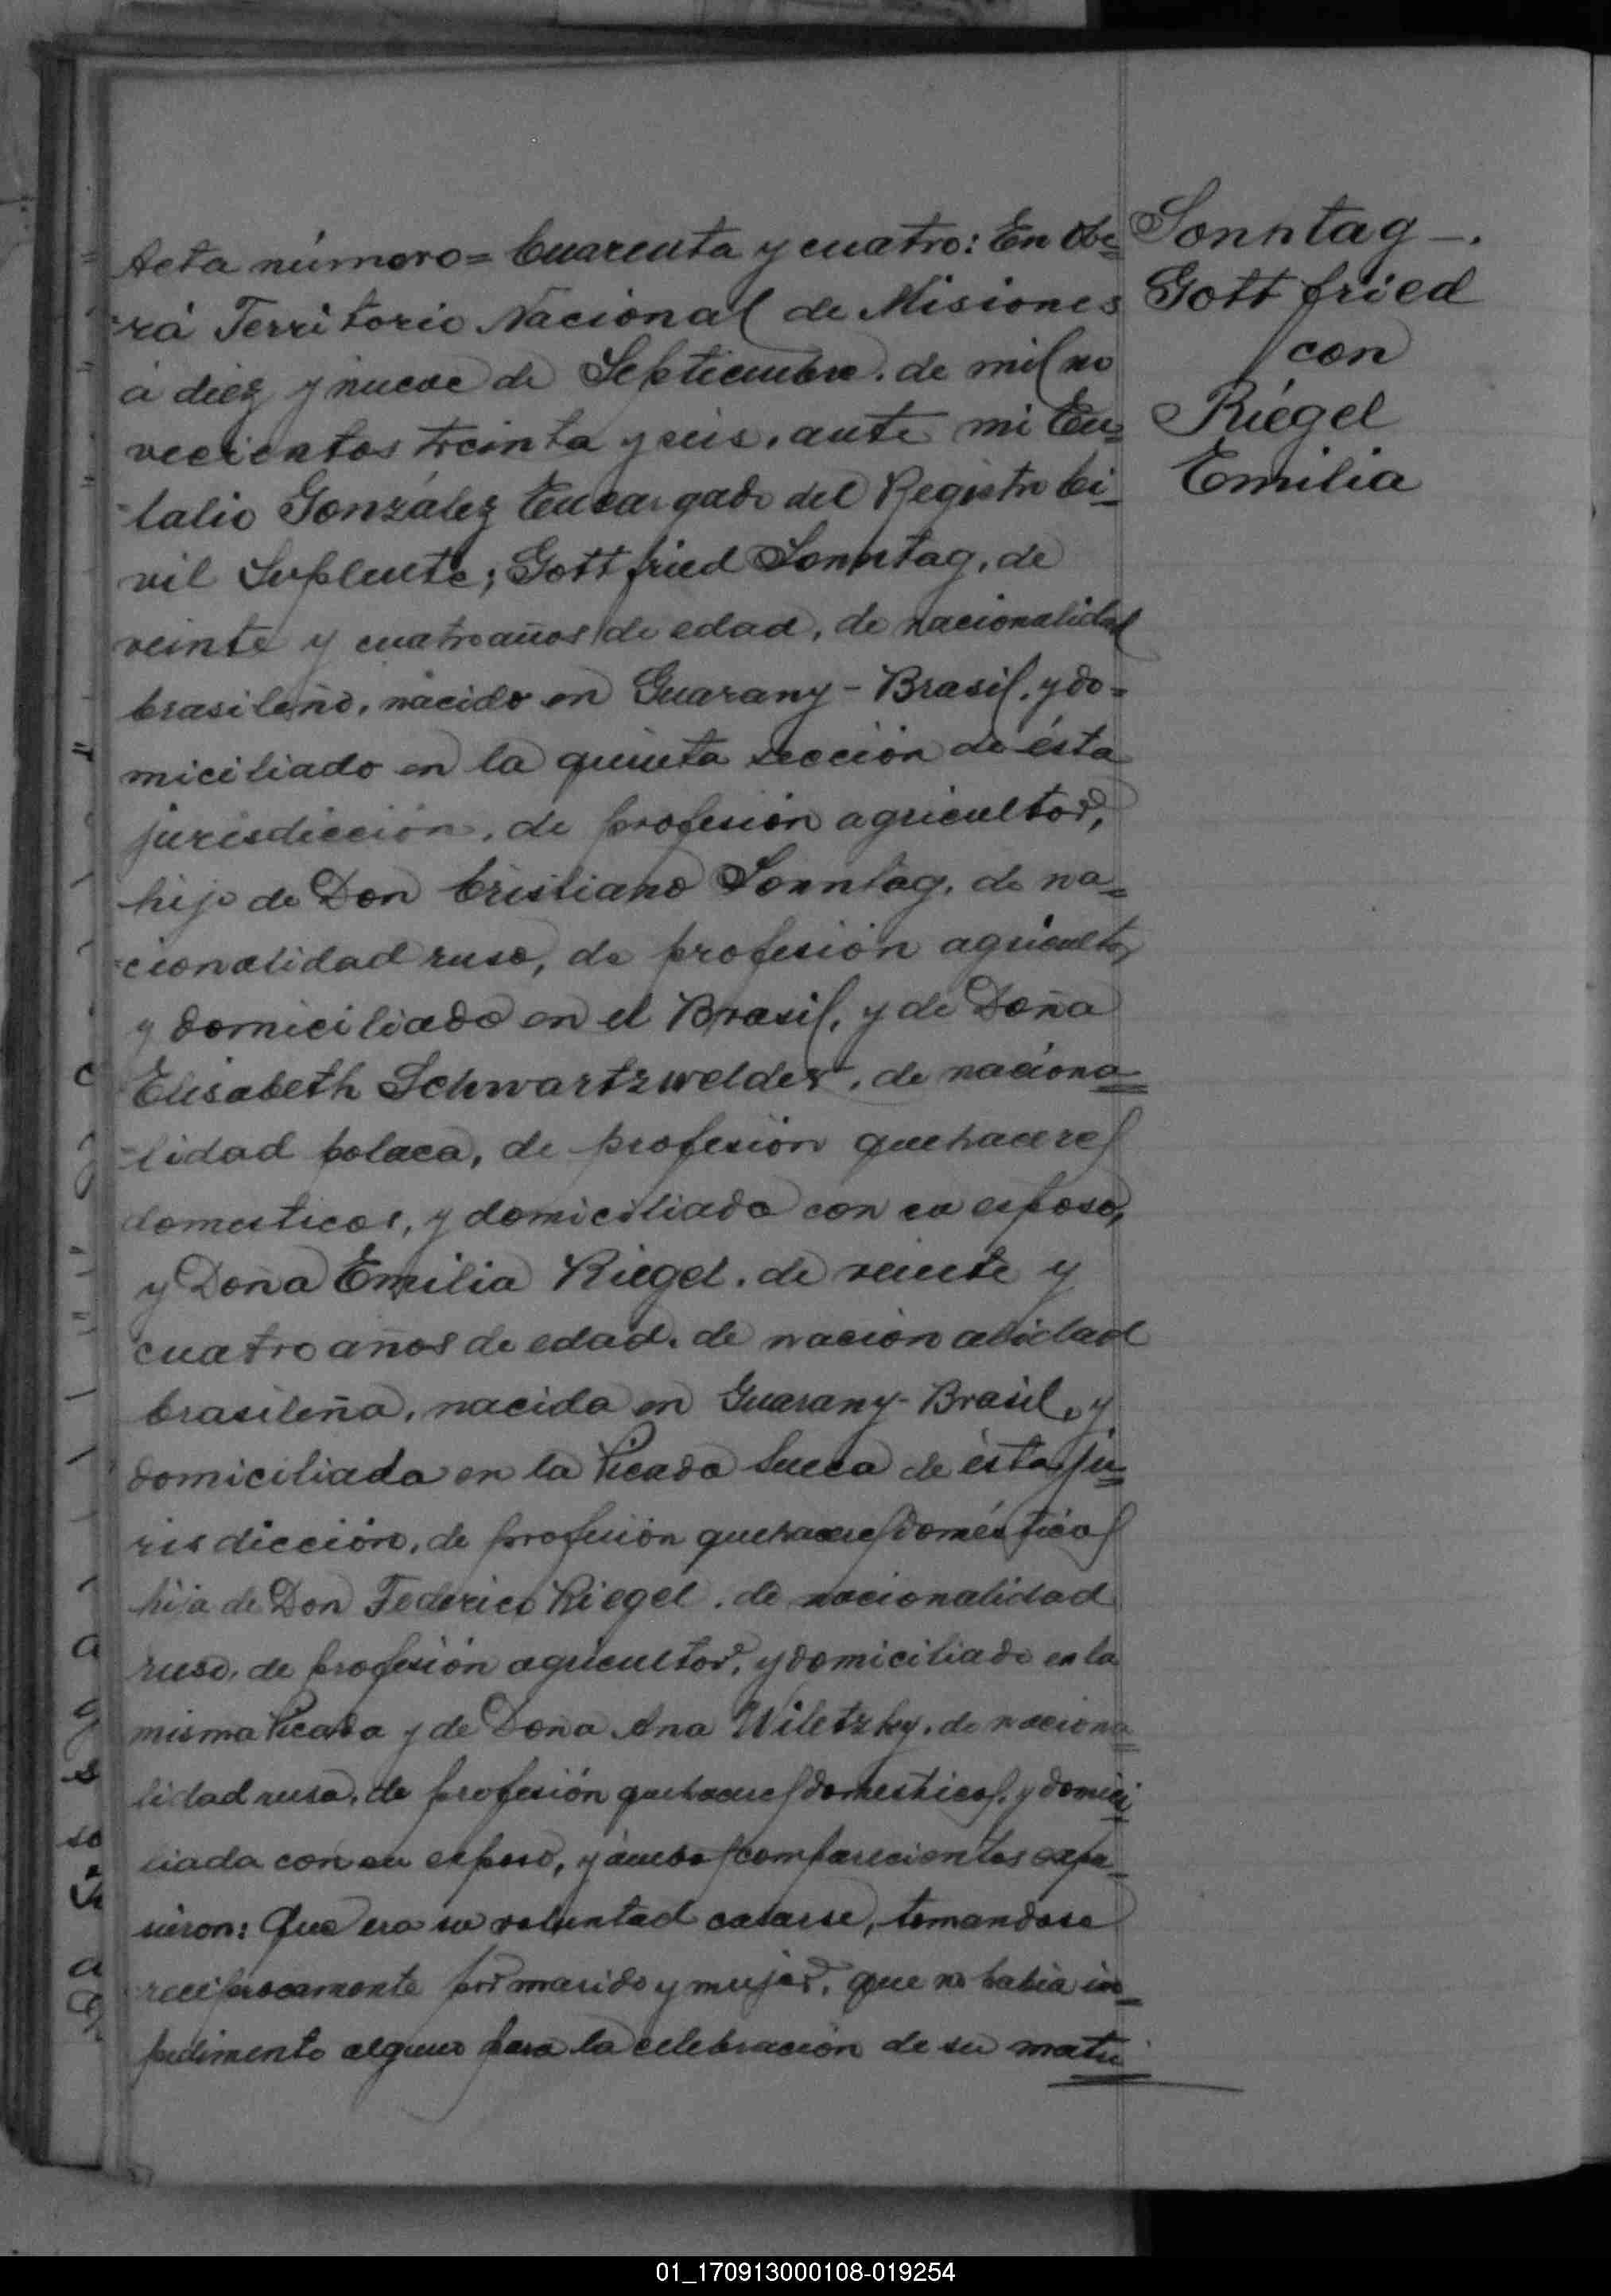 Acta número= Cuarenta y cuatro: En Obe=
-rá Territorio Nacional de Misiones
á diez y nueve de Septiembre. de mil no
vecientos treinta y seis, ante mi Eu=
-lalio González Encargado del Registro Ci-
vil Suplente; Gottfried Sonntag, de
veinte y cuatro años de edad, de nacionalidad
brasileño, nacido en Guarany - Brasil, y do=
miciliado en la quinta sección de ésta
jurisdicción, de profesión agricultor,
hijo de Don Cristiano Sonntag, de na=
-cionalidad ruso, de profesión agricultor
y domiciliado en el Brasil, y de Doña
Elisabeth Schwartzwelder, de naciona=
-lidad polaca, de profesión quehaceres
domesticos, y domiciliada con su esposo,
y Doña Emilia Riegel, de veinte y
cuatro años de edad, de nacionalidad
brasileña, nacida en Guarany - Brasil, y
domiciliada en la Picada Sueca de ésta ju=
risdicción, de profesión quehaceres domésticos
hija de Don Federico Riegel, de nacionalidad
ruso, de profesión agricultor, y domiciliado en la
misma Picada y de Doña Ana Wiletzky, de naciona=
lidad rusa, de profesión quehaceres domesticos, y domici=
liada con su esposo, y ámbos comparecientes expu-
sieron: Que era su voluntad casarse, tomandose
reciprocamente por marido y mujer, que no habia im-
pedimento alguno para la celebración de su matri
Sonntag -.
Gottfried
con
Riegel
Emilia
01_170913000108-019254